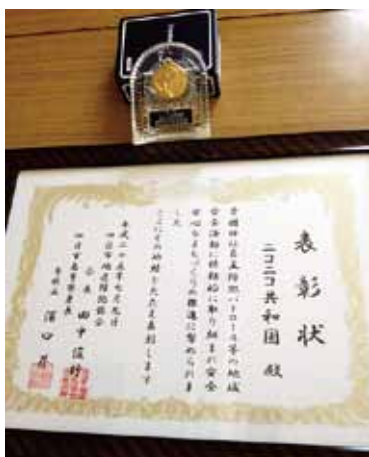 表彰状
ニコニコ共和国 殿
貴団体は自主防犯パトロール等の地域
安全活動に積極的に取り組まれ安全
安心なまちづくりの推進に努められま
した
ここにその功績をたたえ表彰します
平成二十五年七月九日
四日市地区防犯協会
会長 田中俊行
四日市南警察署長
警視正 濵口